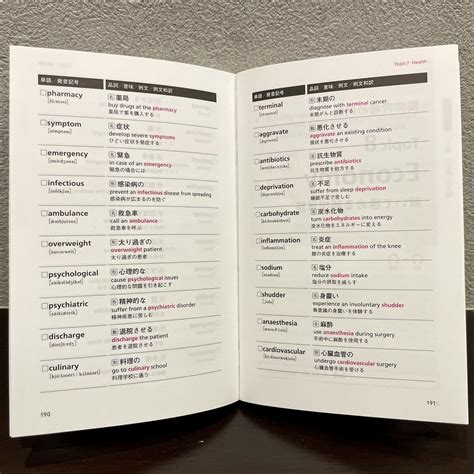 単語／発音記号
品詞／意味／例文／例文和訳
pharmacy
薬局
buy drugs at the pharmacy
薬局で薬を購入する
symptom
症状
develop severe symptoms
ひどい症状を発症する
emergency
緊急
in case of an emergency
緊急の場合には
infectious
感染病の
prevent an infectious disease from spreading
感染病が広まるのを防ぐ
ambulance
救急車
call an ambulance
救急車を呼ぶ
overweight
太り過ぎの
overweight patient
太り過ぎの患者
psychological
心理的な
cause psychological issues
心理的な問題を引き起こす
psychiatric
精神的な
suffer from a psychiatric disorder
精神疾患に苦しむ
discharge
退院させる
discharge the patient
患者を退院させる
culinary
料理の
go to culinary school
料理学校に通う
190
Topic7 Health
単語／発音記号
品詞／意味／例文／例文和訳
terminal
末期の
diagnose with terminal cancer
末期がんと診断する
aggravate
悪化させる
aggravate an existing condition
持病を悪化させる
antibiotics
抗生物質
prescribe antibiotics
抗生物質を処方する
deprivation
不足
suffer from sleep deprivation
睡眠不足に悩まされる
carbohydrate
炭水化物
turn carbohydrates into energy
炭水化物をエネルギーに変える
inflammation
炎症
treat an inflammation of the knee
膝の炎症を治療する
sodium
塩分
reduce sodium intake
塩分の摂取を減らす
shudder
身震い
experience an involuntary shudder
無意識の身震いを体験する
anaesthesia
麻酔
use anaesthesia during surgery
手術中に麻酔を使用する
cardiovascular
心臓血管の
undergo cardiovascular surgery
心臓血管手術を受ける
191